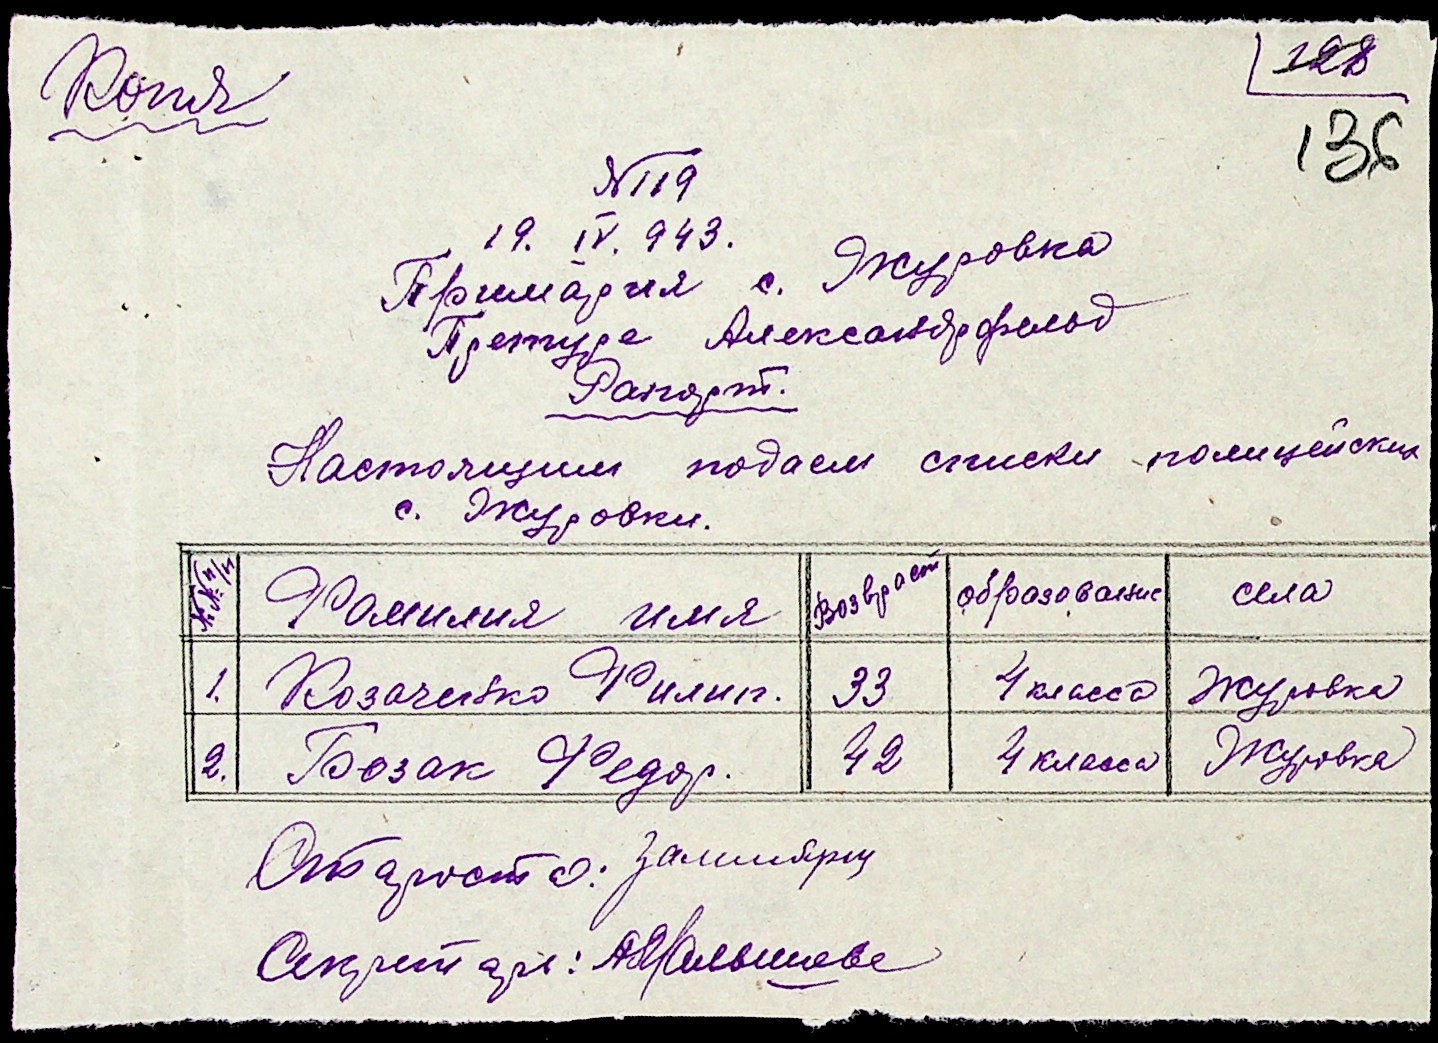 Копия
128
136
№ 119
19. IV. 943.
Примария с. Журовка
Претуре Александрфельд
Рапорт.
Настоящим подаем списки полицейских
с. Журовки.
№№ п/п Фамилия имя Возвраст образование села
1. Козаченко Филип. 33 4 класса Журовка
2. Бозак Федор. 42 4 класса Журовка
Староста:
Секретарь: